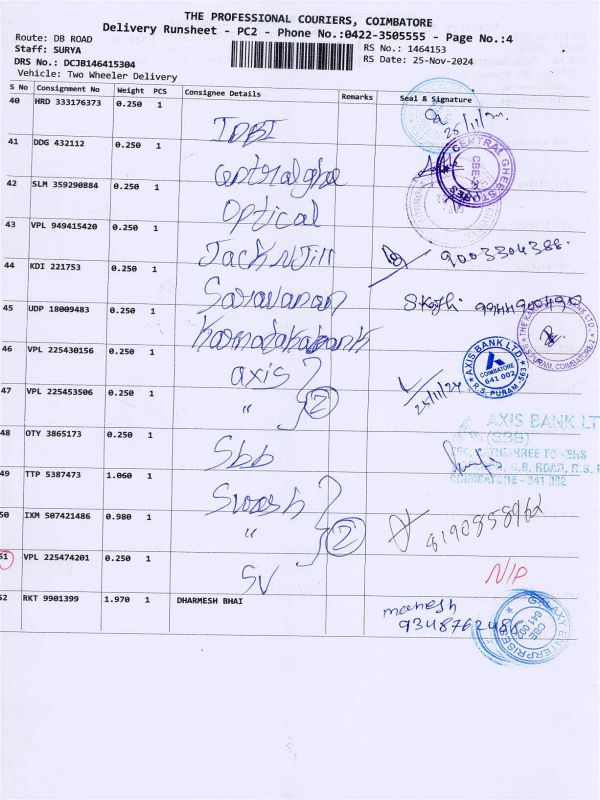 THE PROFESSIONAL COURIERS, COIMBATORE
Delivery Runsheet - PC2 - Phone No.:0422-3505555 - Page No.:4
Route: DB ROAD
Staff: SURYA
DRS No.: DCJB146415304
Vehicle: Two Wheeler Delivery
RS No.: 1464153
RS Date: 25-Nov-2024
S No Consignment No Weight PCS Consignee Details Remarks Seal & Signature
40 HRD 333176373 0.250 1 IDBI 25/11/24
41 DDG 432112 0.250 1 Central ghee CENTRAL GHEE STORES CBE-2
42 SLM 359290884 0.250 1 Optical
43 VPL 949415420 0.250 1 Jack N Jill 9003304388.
44 KDI 221753 0.250 1 Saravanan 9944900490
45 UDP 18009483 0.250 1 Karnataka bank R.S PURAM, COIMBATORE-2
46 VPL 225430156 0.250 1 axis 25/11/24 AXIS BANK LTD. COIMBATORE 641 002 R.S. PURAM-563
47 VPL 225453506 0.250 1 " 2
AXIS BANK LT
(SBB)
48 OTY 3865173 0.250 1 Sbb
COIMBATORE - 641 002
49 TTP 5387473 1.060 1 Swash
50 IXM 507421486 0.980 1 " 2 8190858962
51 VPL 225474201 0.250 1 SV N/P
52 RKT 9901399 1.970 1 DHARMESH BHAI mahesh
9348762486 GALAXY ENTERPRISES CBE 641 002